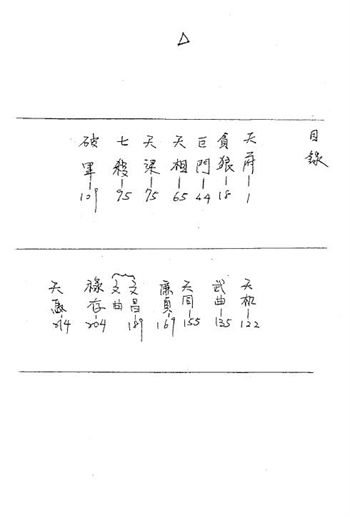 △
目錄
天府-1
貪狼-18
巨門-44
天相-65
天梁-75
七殺-95
破軍-109
天机-122
武曲-135
天同-155
廉貞-169
文昌
文曲 189
祿存-204
天馬-214